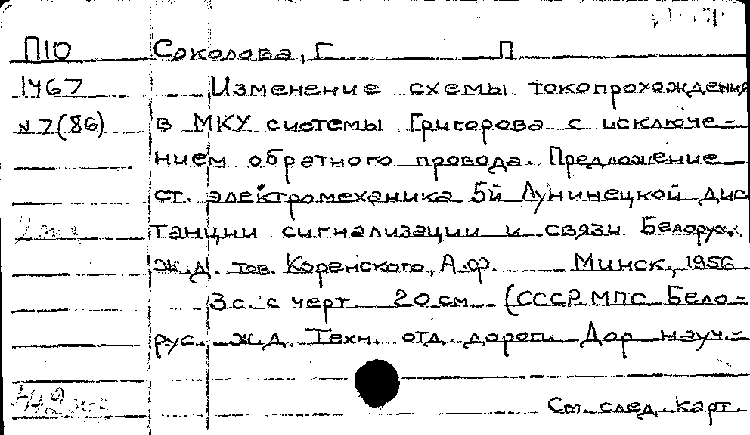 П10 Соколова, Г. П.
1467 Изменение схемы токопрохождения
N7(86) в МКУ системы Григорова с исключе-
нием обратного провода. Предложение
ст. электромеханика 5й Лунинецкой дис
танции сигнализации и связи Белорус.
ж.д. тов. Коренского, А.Ф. Минск, 1956
3с. с черт. 20 см. (СССР. МПС. Бело-
рус. ж.д. Техн. отд. дороги. Дор. науч.-
См. след. карт.